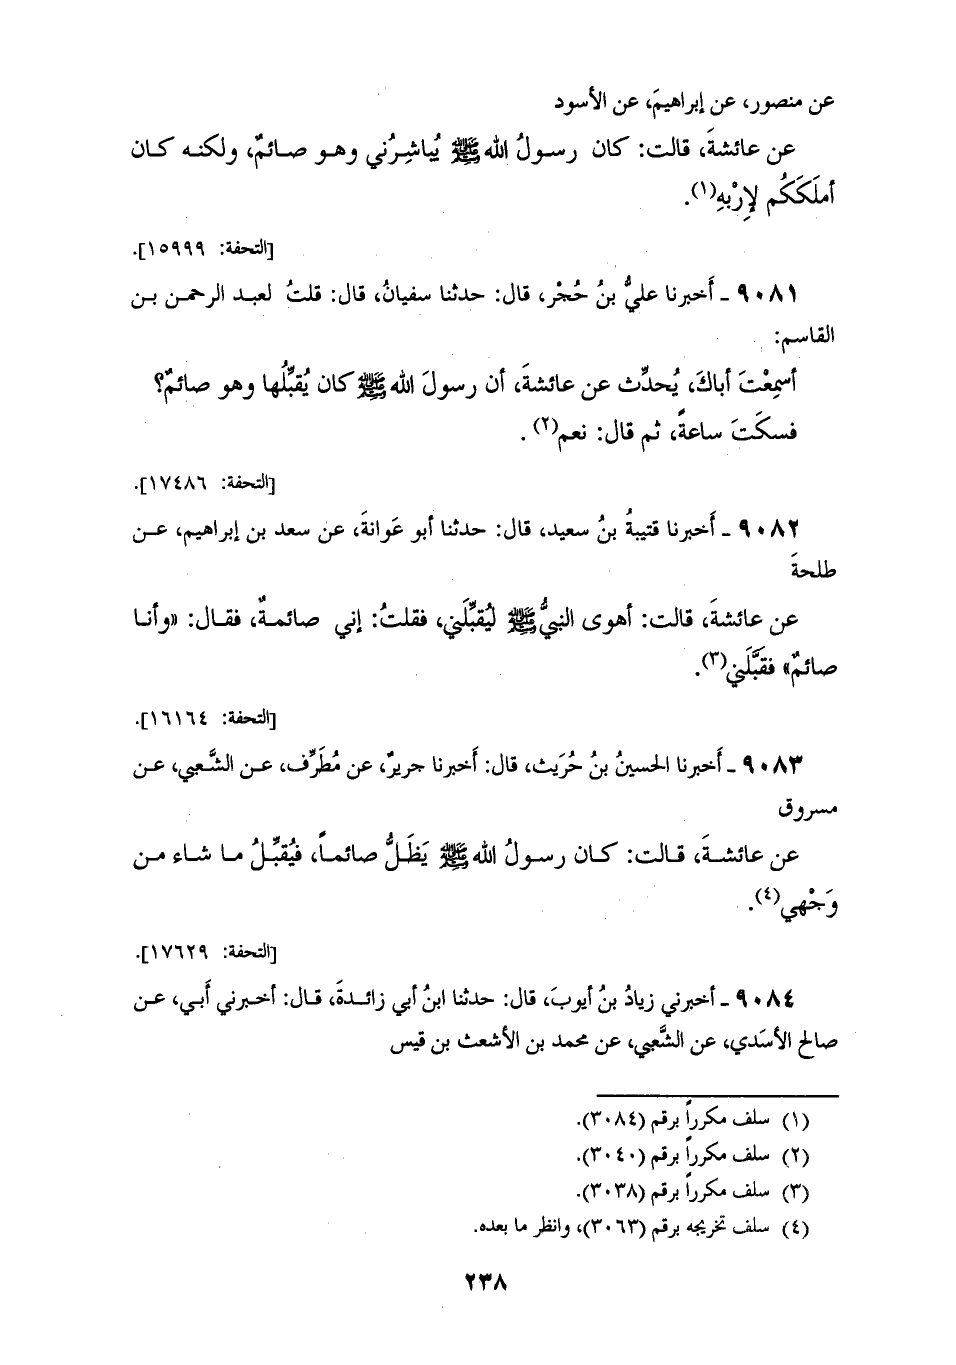 عن منصور، عن إبراهيمَ، عن الأسود
عن عائشةَ، قالت: كان رسولُ الله ﷺ يُباشِرُني وهو صائمٌ، ولكنه كان
أملَكَكُم لإِرْبِهِ(١).
[التحفة: ١٥٩٩٩].
٩٠٨١ ـ أَخبرنا عليُّ بنُ حُجْر، قال: حدثنا سفيانُ، قال: قلتُ لعبد الرحمن بن
القاسم:
أسمِعْتَ أباكَ، يُحدِّث عن عائشةَ، أن رسولَ الله ﷺ كان يُقبِّلُها وهو صائمٌ؟
فسكَتَ ساعةً، ثم قال: نعم(٢).
[التحفة: ١٧٤٨٦].
٩٠٨٢ ـ أَخبرنا قتيبةُ بنُ سعيد، قال: حدثنا أبو عَوانةَ، عن سعد بن إبراهيم، عن
طلحةَ
عن عائشةَ، قالت: أهوى النبيُّ ﷺ ليُقبِّلَني، فقلتُ: إني صائمةٌ، فقال: «وأنا
صائمٌ» فقبَّلَني(٣).
[التحفة: ١٦١٦٤].
٩٠٨٣ ـ أَخبرنا الحسينُ بنُ حُرَيث، قال: أَخبرنا جريرٌ، عن مُطَرِّف، عن الشَّعبي، عن
مسروق
عن عائشةَ، قالت: كان رسولُ الله ﷺ يَظَلُّ صائماً، فيُقبِّلُ ما شاء من
وَجْهي(٤).
[التحفة: ١٧٦٢٩].
٩٠٨٤ ـ أخبرني زيادُ بنُ أيوبَ، قال: حدثنا ابنُ أبي زائدةَ، قال: أخبرني أَبي، عن
صالح الأسَدي، عن الشَّعبي، عن محمد بن الأشعث بن قيس
(١) سلف مكرراً برقم (٣٠٨٤).
(٢) سلف مكرراً برقم (٣٠٤٠).
(٣) سلف مكرراً برقم (٣٠٣٨).
(٤) سلف تخريجه برقم (٣٠٦٣)، وانظر ما بعده.
٢٣٨